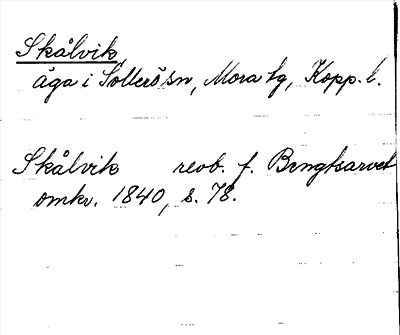 Skålvik
äga i Sollerö sn, Mora tg, Kopp. l.
Skålvik reob. f. Bengtsarvet
omkr. 1840, s. 78.